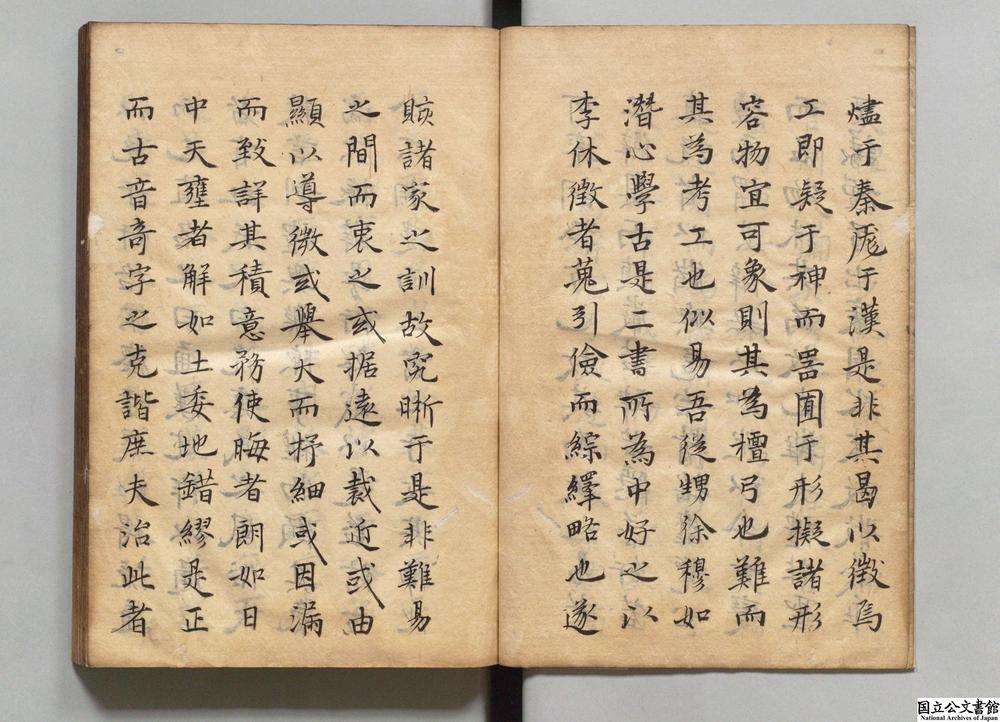 燼于秦厖于漢是非其曷以徵焉
工即疑于神而器囿于形擬諸形
容物宜可象則其為檀弓也難而
其為考工也似易吾從甥徐穆如
潛心學古是二書所為中好之以
李休徵者蒐引儉而綜繹略也遂
賅諸家之訓故究晰于是非難易
之間而衷之或据遠以裁近或由
顯以導微或舉大而抒細或因漏
而致詳其積意務使晦者朗如日
中天壅者解如土委地錯繆是正
而古音奇字之克諧庶夫治此者
国立公文書館
National Archives of Japan